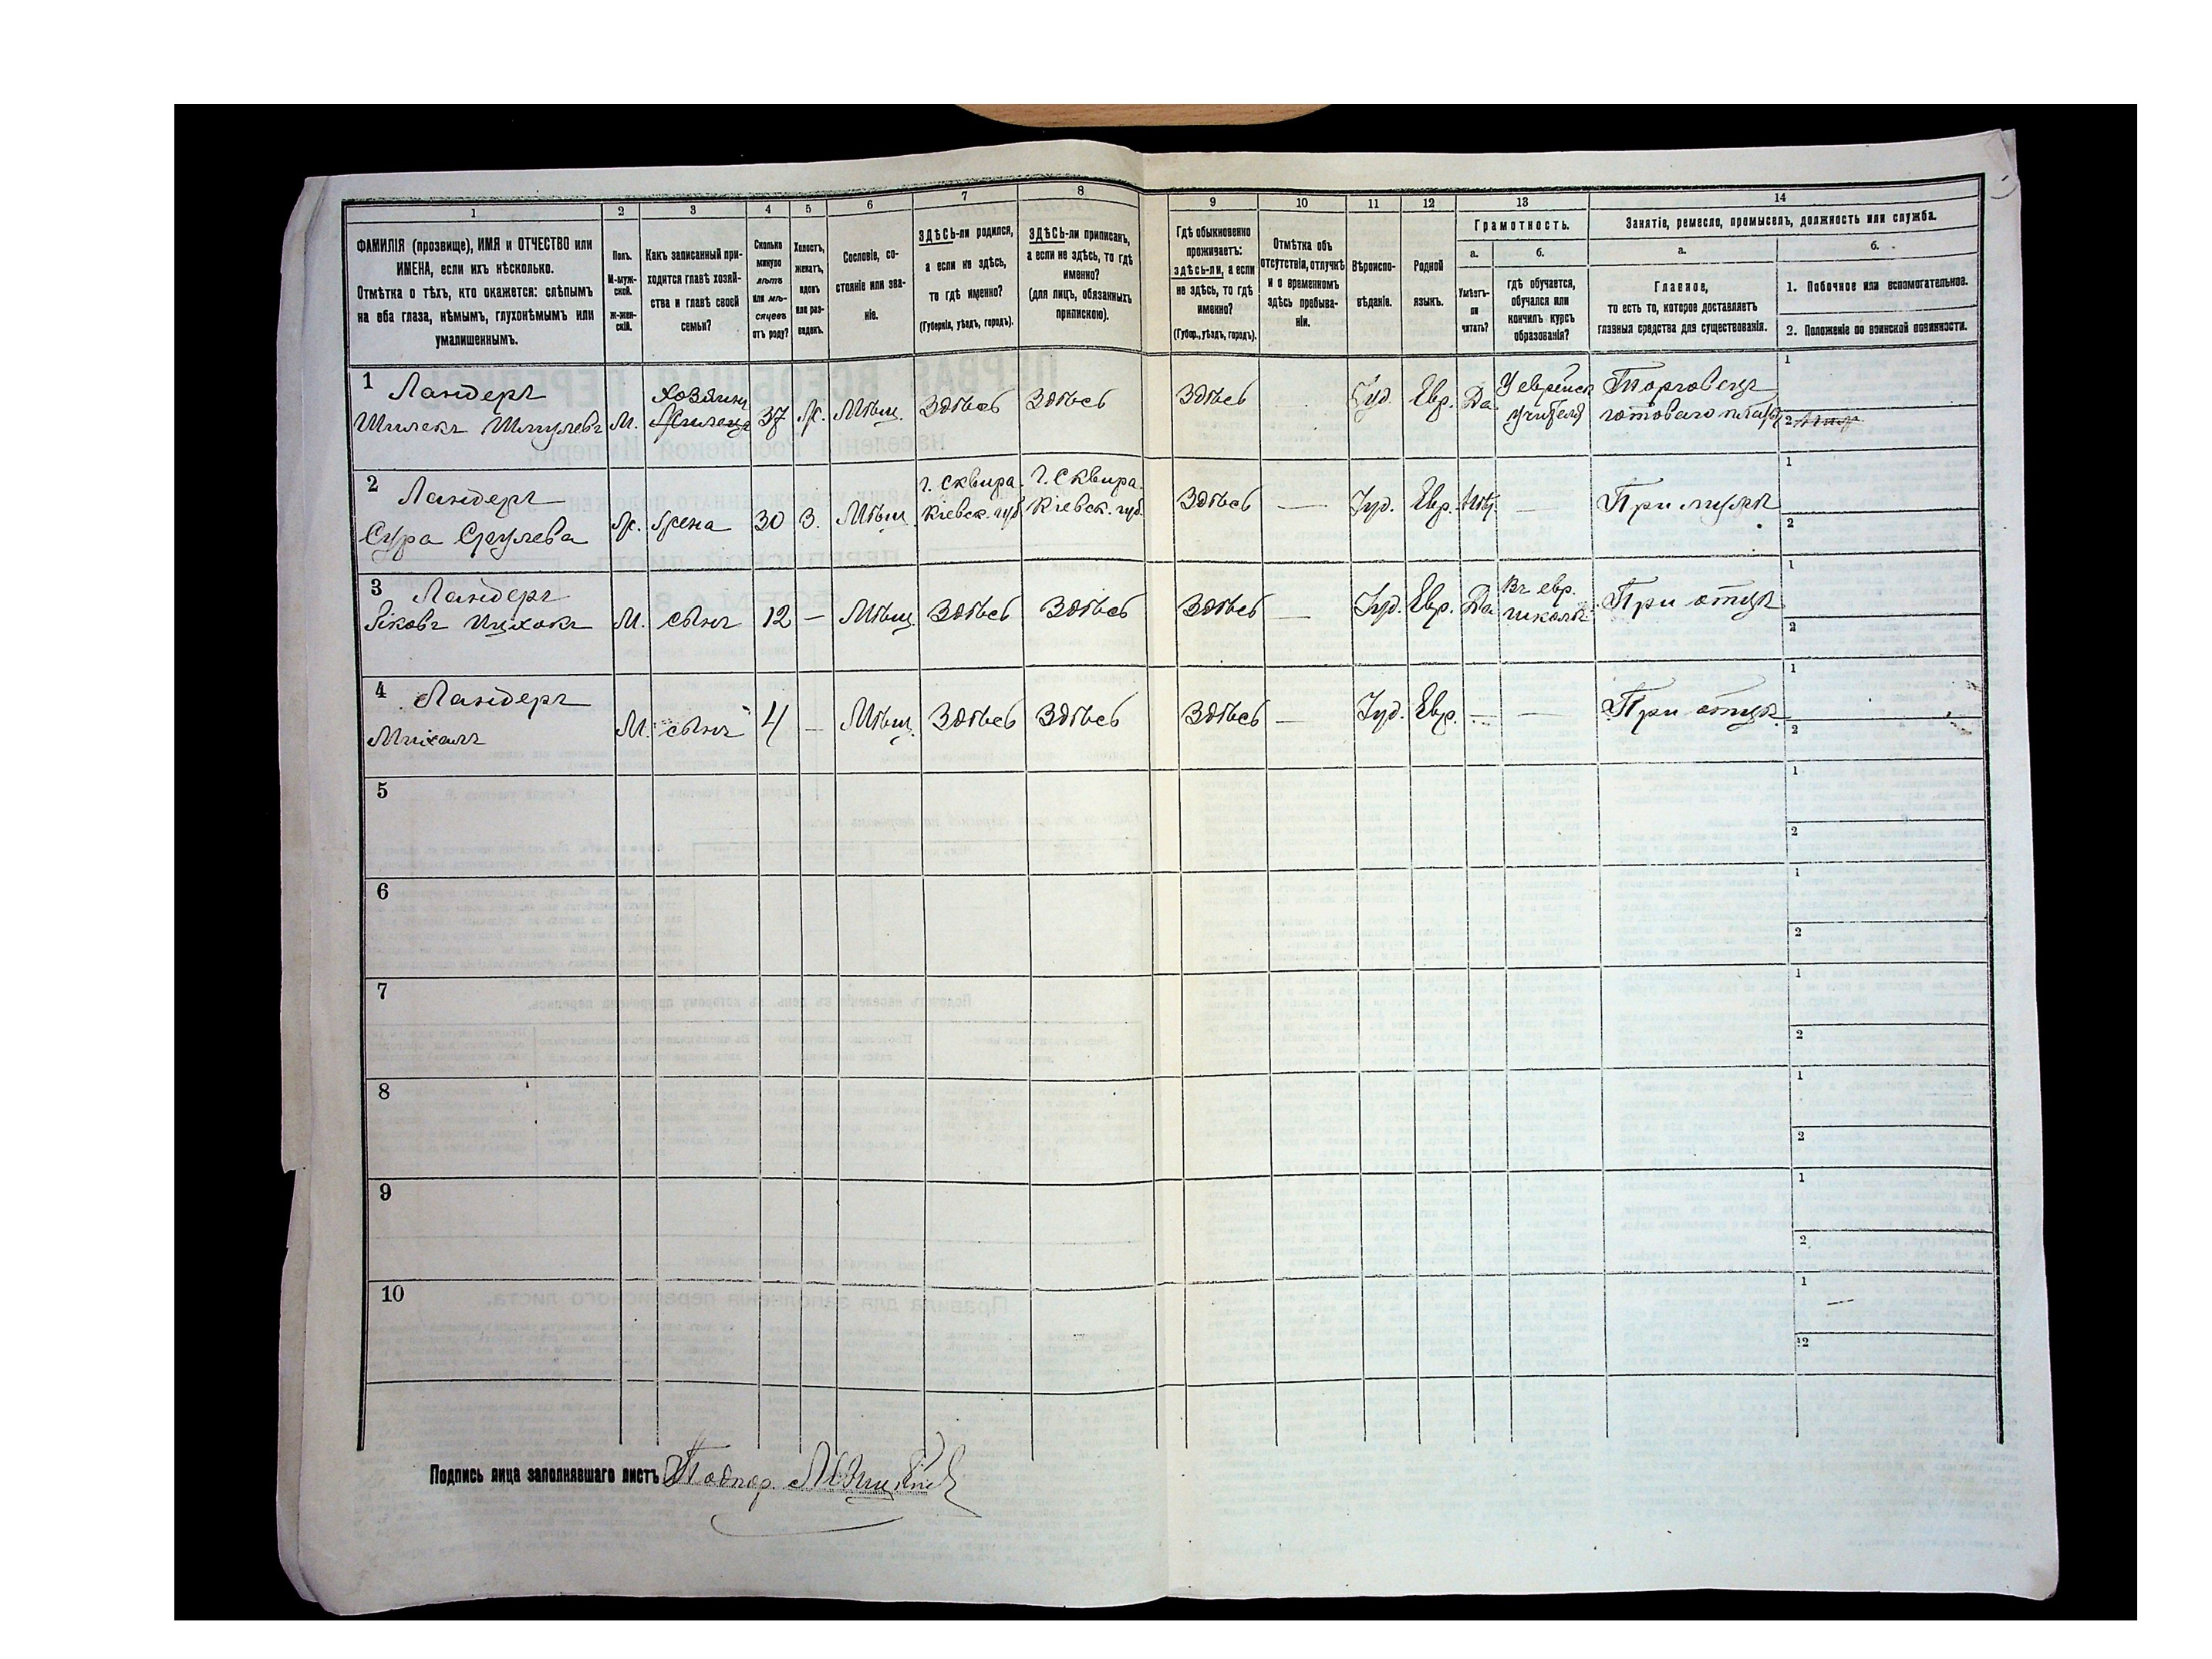 1
2
3
4
5
6
7
8
9
10
11
12
13
14
ФАМИЛІЯ (прозвище), ИМЯ и ОТЧЕСТВО или
ИМЕНА, если ихъ нѣсколько.
Отмѣтка о тѣхъ, кто окажется: слѣпымъ
на оба глаза, нѣмымъ, глухонѣмымъ или
умалишеннымъ.
Полъ.
М-муж-
ской.
ж-жен-
скій.
Какъ записанный при-
ходится главѣ хозяй-
ства и главѣ своей
семьи?
Сколько
минуло
лѣтъ
или мѣ-
сяцевъ
отъ роду?
Холостъ,
женатъ,
вдовъ
или раз-
веденъ.
Сословіе, со-
стояніе или зва-
ніе.
ЗДѢСЬ-ли родился,
а если не здѣсь,
то гдѣ именно?
(Губернія, уѣздъ, городъ).
ЗДѢСЬ-ли приписанъ,
а если не здѣсь, то гдѣ
именно?
(для лицъ, обязанныхъ
припискою).
Гдѣ обыкновенно
проживаетъ:
здѣсь-ли, а если
не здѣсь, то гдѣ
именно?
(Губер., уѣздъ, городъ).
Отмѣтка объ
отсутствіи, отлучкѣ
и о временномъ
здѣсь пребыва-
ніи.
Вѣроиспо-
вѣданіе.
Родной
языкъ.
Грамотность.
а.
б.
Умѣетъ-
ли
читать?
гдѣ обучается,
обучался или
кончилъ курсъ
образованія?
Занятіе, ремесло, промыселъ, должность или служба.
а.
б.
Главное,
то есть то, которое доставляетъ
главныя средства для существованія.
1. Побочное или вспомогательное.
2. Положеніе по воинской повинности.
1 Ландеръ
Шмулевъ
М.
хозяинъ
37
Ж.
Мѣщ.
Здѣсь
Здѣсь
Здѣсь
Іуд.
Евр.
Да
У еврейск
учителя
Торговецъ
готоваго платья
1
2
2 Ландеръ
Сура Срулева
Ж.
жена
30
З.
Мѣщ.
г. Сквира
Кіевск. губ
г. Сквира
Кіевск. губ.
Здѣсь
—
Іуд.
Евр.
Нѣт
—
При мужѣ
1
2
3 Ландеръ
Яковъ Ицхокъ
М.
сынъ
12
—
Мѣщ.
Здѣсь
Здѣсь
Здѣсь
—
Іуд.
Евр.
Да
Въ евр.
школѣ
При отцѣ
1
2
4 Ландеръ
Михаль
М.
сынъ
4
—
Мѣщ.
Здѣсь
Здѣсь
Здѣсь
—
Іуд.
Евр.
—
—
При отцѣ
1
2
5
1
2
6
1
2
7
1
2
8
1
2
9
1
2
10
1
2
Подпись лица заполнявшаго листъ